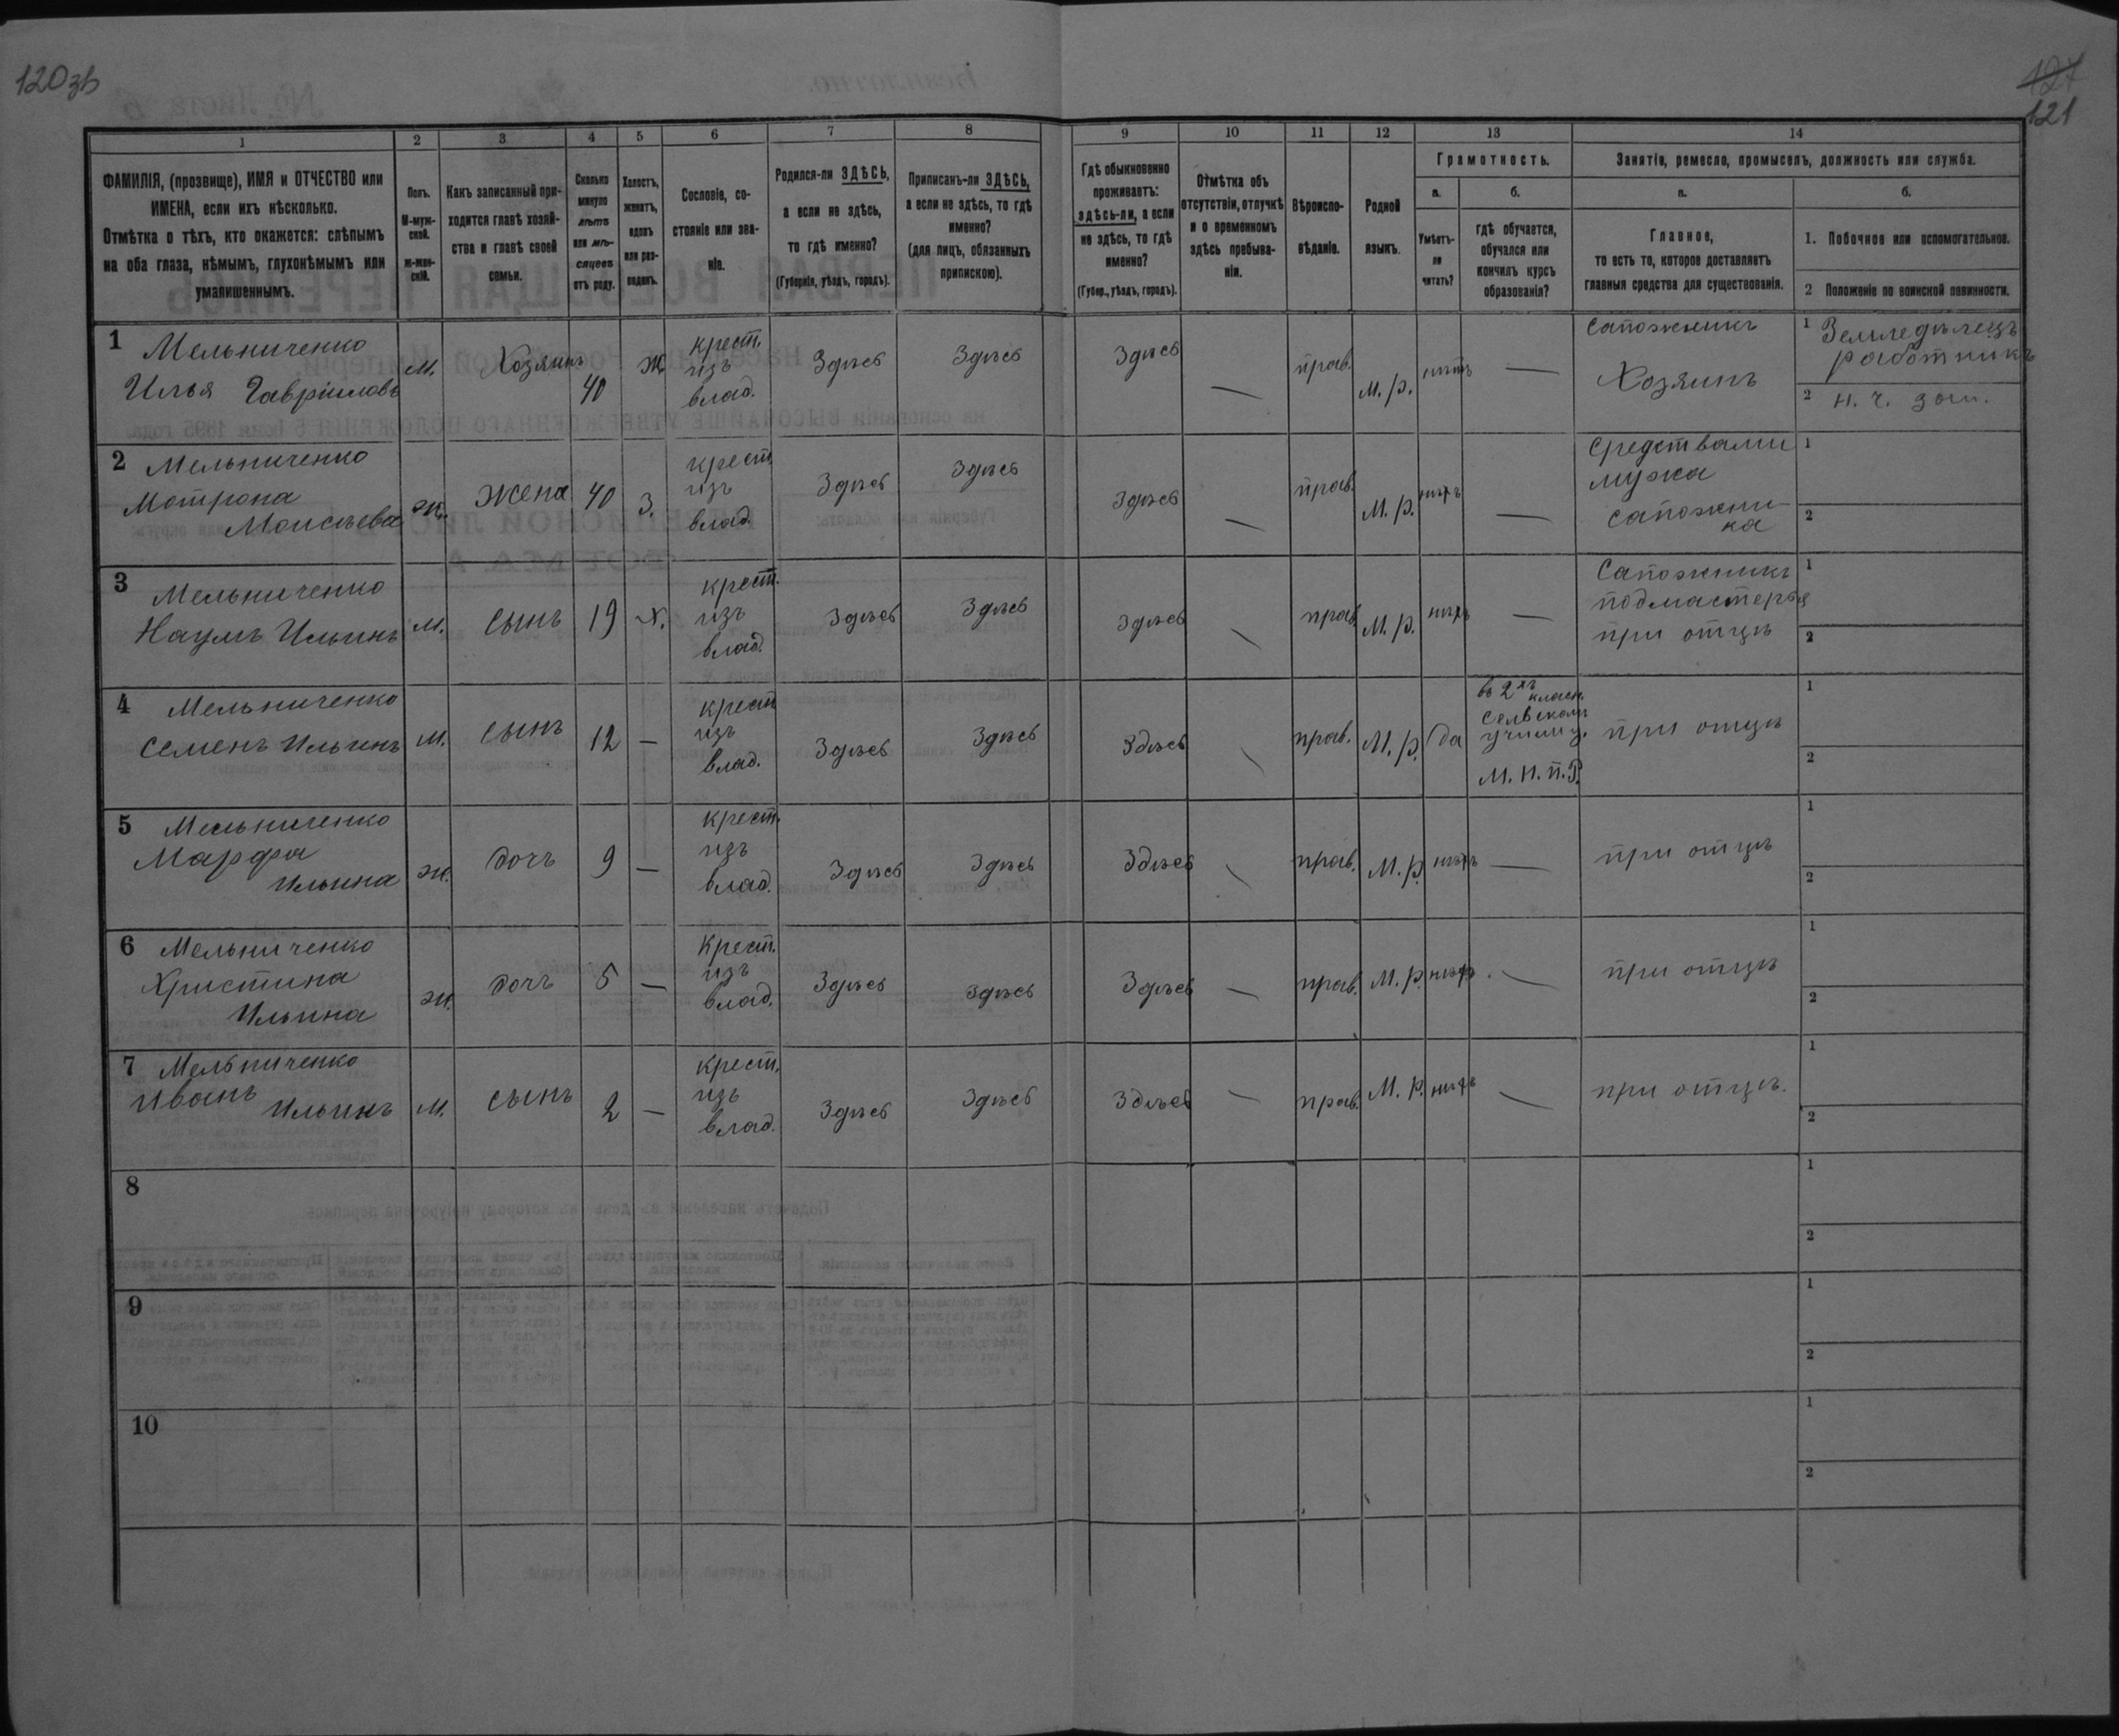 120зв
127
121
1
2
3
4
5
6
7
8
9
10
11
12
13
14
ФАМИЛІЯ, (прозвище), ИМЯ и ОТЧЕСТВО или
ИМЕНА, если ихъ нѣсколько.
Отмѣтка о тѣхъ, кто окажется: слѣпымъ
на оба глаза, нѣмымъ, глухонѣмымъ или
умалишеннымъ.
Полъ.
М-муж-
ской.
ж-жен-
скій.
Какъ записанный при-
ходится главѣ хозяй-
ства и главѣ своей
семьи.
Сколько
минуло
лѣтъ
или мѣ-
сяцевъ
отъ роду.
Холостъ,
женатъ,
вдовъ
или раз-
веденъ.
Сословіе, со-
стояніе или зва-
ніе.
Родился-ли ЗДѢСЬ,
а если не здѣсь,
то гдѣ именно?
(Губернія, уѣздъ, городъ).
Приписанъ-ли ЗДѢСЬ,
а если не здѣсь, то гдѣ
именно?
(для лицъ, обязанныхъ
припискою).
Гдѣ обыкновенно
проживаетъ:
здѣсь-ли, а если
не здѣсь, то гдѣ
именно?
(Губер., уѣздъ, городъ).
Отмѣтка объ
отсутствіи, отлучкѣ
и о временномъ
здѣсь пребыва-
ніи.
Вѣроиспо-
вѣданіе.
Родной
языкъ.
Грамотность.
а.
Умѣетъ-
ли
читать?
б.
гдѣ обучается,
обучался или
кончилъ курсъ
образованія?
Занятіе, ремесло, промыселъ, должность или служба.
а.
Главное,
то есть то, которое доставляетъ
главныя средства для существованія.
б.
1. Побочное или вспомогательное.
2 Положеніе по воинской повинности.
1 Мельниченко
Илья Гавріиловъ
м.
Хозяинъ
40
Ж.
крест.
изъ
влад.
Здѣсь
Здѣсь
Здѣсь
—
прав.
М. р.
нѣтъ
—
Сапожникъ
Хозяинъ
1 Земледѣлецъ
работникъ
2
2 Мельниченко
Мотрона
Моисѣева
ж.
Жена
40
З.
крест.
изъ
влад.
Здѣсь
Здѣсь
Здѣсь
—
прав.
М. р.
нѣтъ
—
Средствами
мужа
сапожни
ка
1
2
3 Мельниченко
Наумъ Ильинъ
м.
сынъ
19
Х.
крест.
изъ
влад.
Здѣсь
Здѣсь
Здѣсь
—
прав.
М. р.
нѣтъ
—
Сапожникъ
подмастерье
при отцѣ
1
2
4 Мельниченко
Семенъ Ильинъ
м.
сынъ
12
—
крест.
изъ
влад.
Здѣсь
Здѣсь
Здѣсь
—
прав.
М. р.
да
въ 2хъ класн.
Сельском
училищ.
М. Н. П. Р.
при отцѣ
1
2
5 Мельниченко
Марфа
Ильина
ж.
дочь
9
—
крест.
изъ
влад.
Здѣсь
Здѣсь
Здѣсь
—
прав.
М. р.
нѣтъ
—
при отцѣ
1
2
6 Мельниченко
Христина
Ильина
ж.
дочь
5
—
крест.
изъ
влад.
Здѣсь
Здѣсь
Здѣсь
—
прав.
М. р.
нѣтъ
—
при отцѣ
1
2
7 Мельниченко
Иванъ
Ильинъ
м.
сынъ
2
—
крест.
изъ
влад.
Здѣсь
Здѣсь
Здѣсь
—
прав.
М. р.
нѣтъ
—
при отцѣ.
1
2
8
1
2
9
1
2
10
1
2